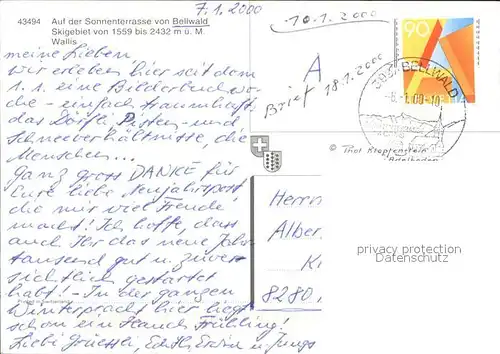 7.1.2000
10-1.2000
43494 Auf der Sonnenterrasse von Bellwald
Skigebiet von 1559 bis 2432 m ü. M.
Wallis
meine Lieben
wir erleben hier seit dem
1.1. eine Bilderbuchwo-
che - einfach traumhaft,
das Dörfli, Pisten- und
Schneeverhältnisse, die
Menschen...
Ganz gross DANKE für
Eure liebe Neujahrspost,
die mir viel Freude
macht! Ich hoffe, dass
auch Ihr das neue Jahr-
tausend gut u. zuver-
sichtlich gestartet
habt! - In der ganzen
Winterpracht hier liegt
schon ein Hauch Frühling!
Liebi Grüessli, Edith, Erwin u. Jungs
A
Brief 18.1.2000
90
BELLWALD
-8.-1.00-10
© Thol Klopfenstein
Adelboden
Herrn
Alber
K
8280
privacy protection
Datenschutz